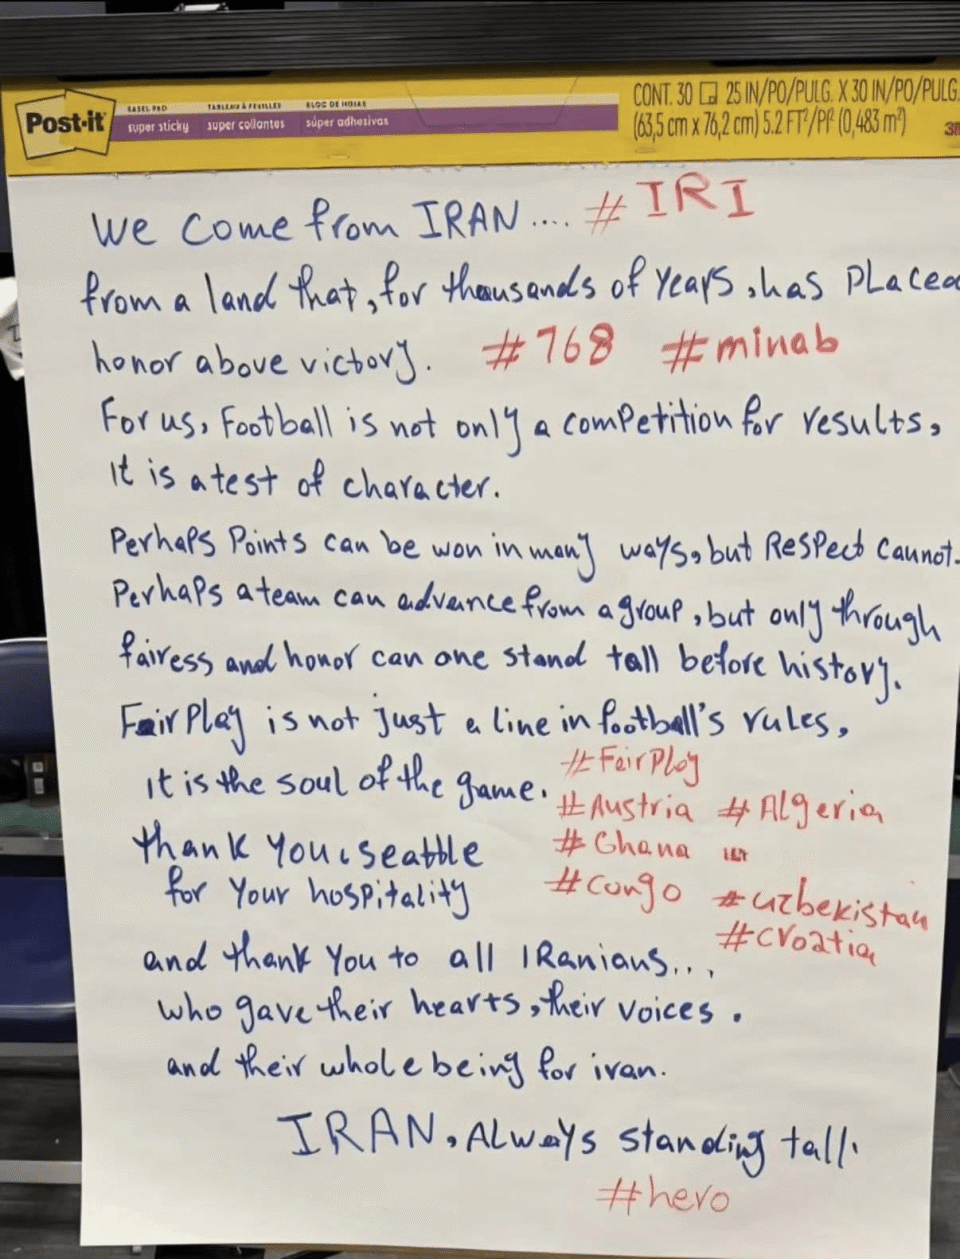 Post-it
EASEL PAD TABLEAU À FEUILLES BLOC DE HOJAS
super sticky super collantes súper adhesivas
CONT. 30 25 IN/PO/PULG. X 30 IN/PO/PULG.
(63,5 cm x 76,2 cm) 5.2 FT²/PI² (0,483 m²)
We come from IRAN .... #IRI
from a land that, for thousands of years, has placed
honor above victory. #768 #minab
For us, Football is not only a competition for results,
it is a test of character.
Perhaps Points can be won in many ways, but Respect cannot.
Perhaps a team can advance from a group, but only through
fairess and honor can one stand tall before history.
Fair Play is not just a line in football's rules,
it is the soul of the game. #FairPlay
#Austria #Algeria
thank you, seattle #Ghana
for your hospitality #congo #uzbekistan
#croatia
and thank you to all IRanians...,
who gave their hearts, their voices.
and their whole being for iran.
IRAN, Always standing tall.
#hero